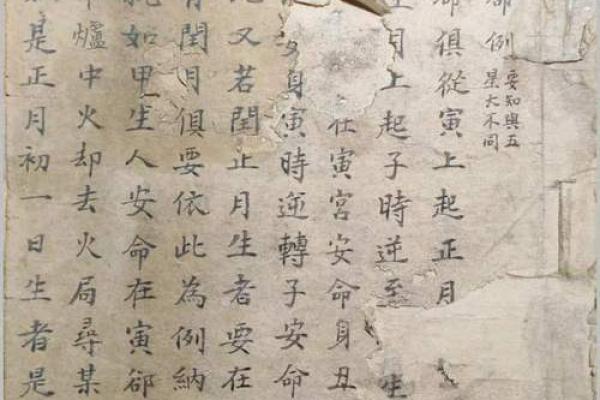 例
要知與五
星大不同
俱從寅上起正月
月上起子時逆至生
在寅宮安命身丑
身寅時逆轉子安命
又若閏正月生者要在
閏月俱要依此為例納
如甲生人安命在寅郤
爐中火却去火局尋某
是正月初一日生者是